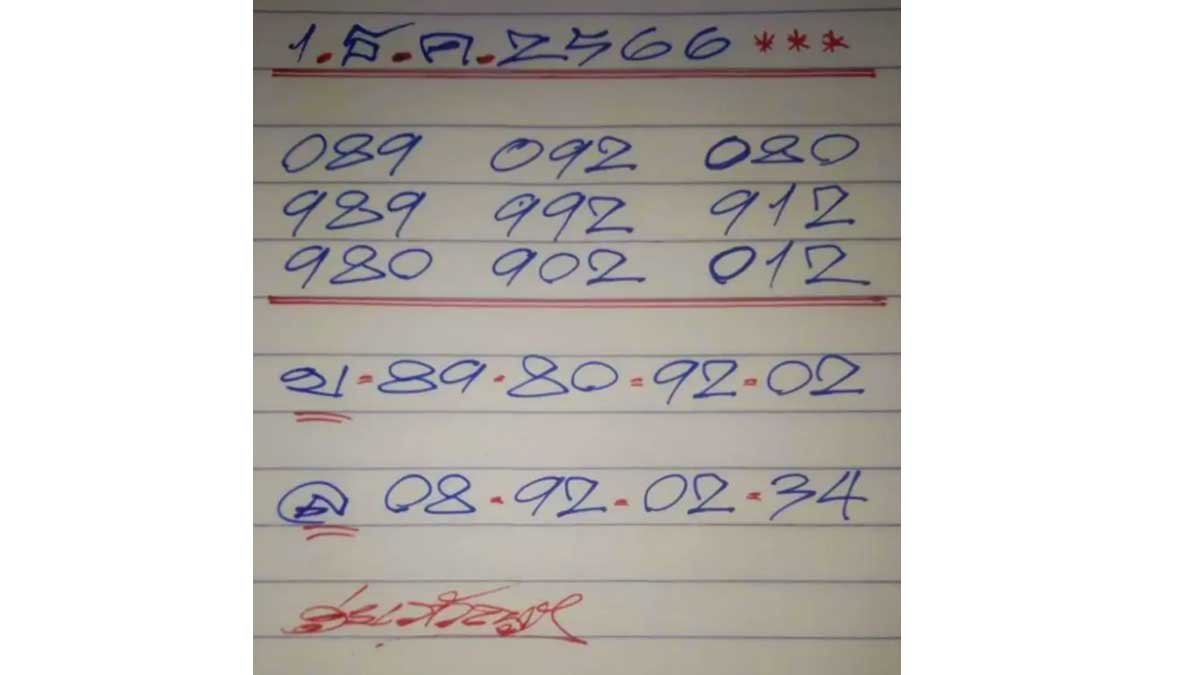 1.ธ.ค.2566 ***
089 092 080
989 992 912
980 902 012
บ=89-80=92-02
ล 08-92-02-34